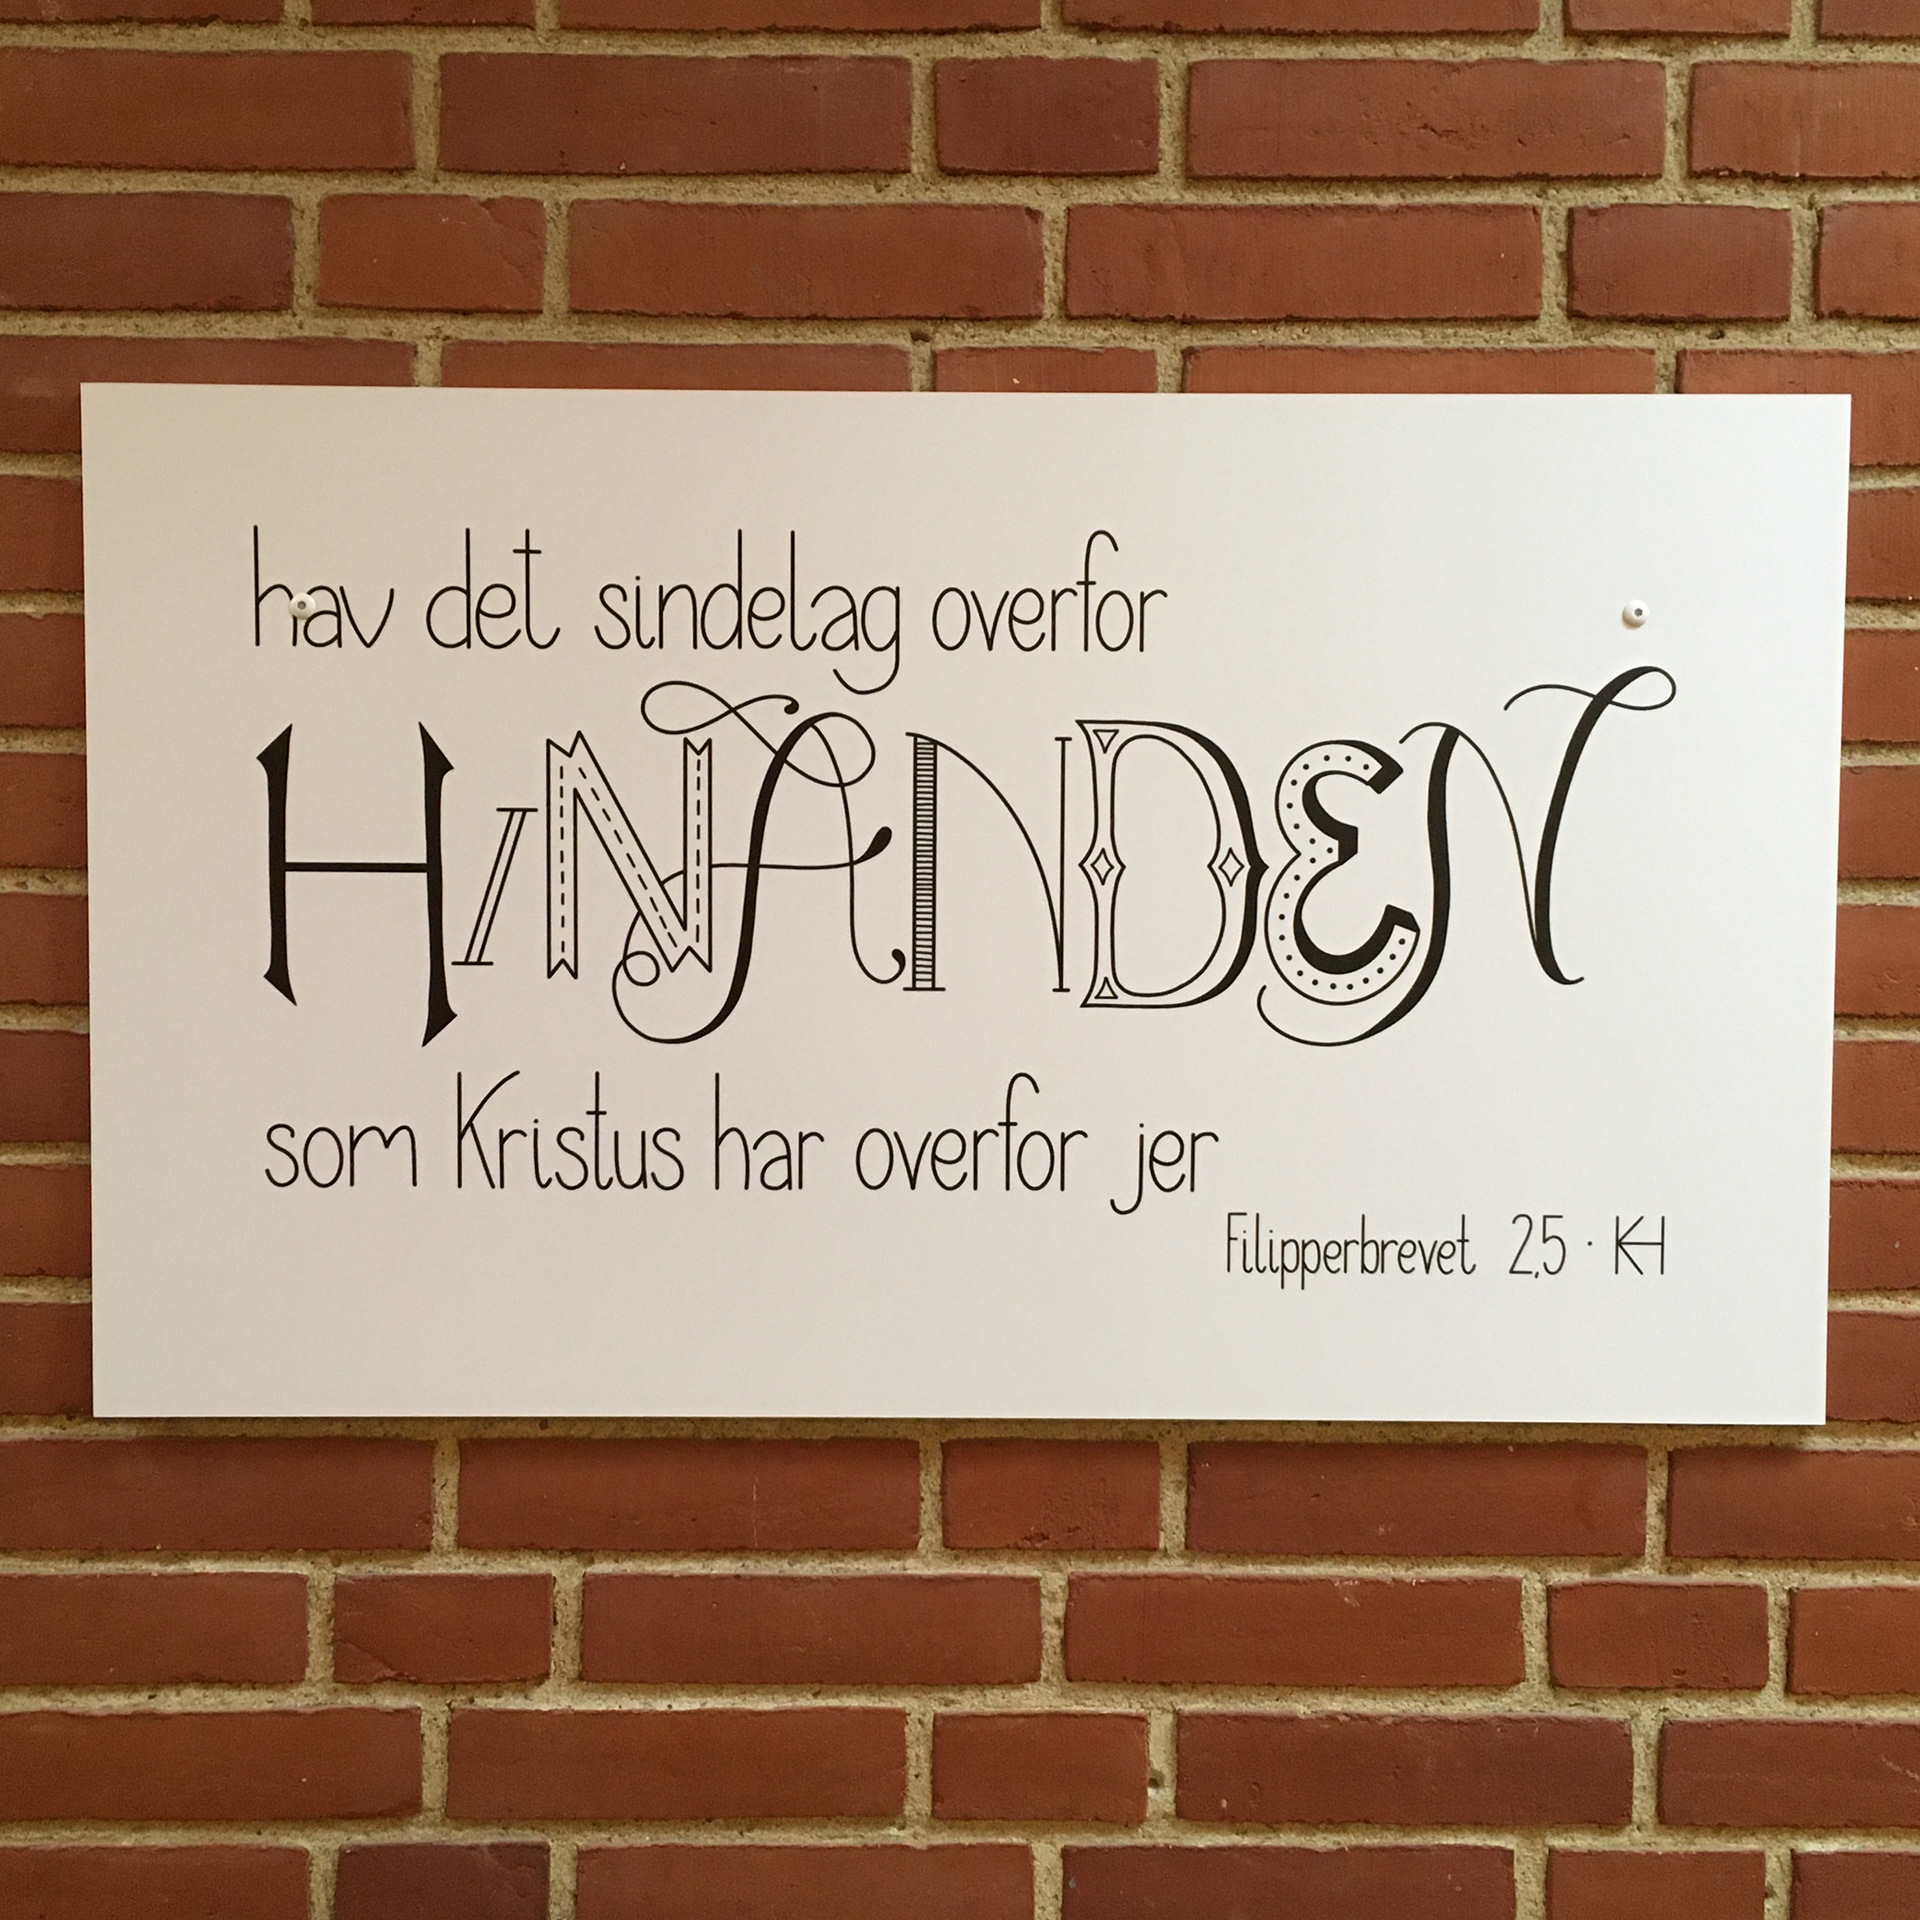 hav det sindelag overfor
HiNANDEN
som Kristus har overfor jer
Filipperbrevet 2,5 · KH